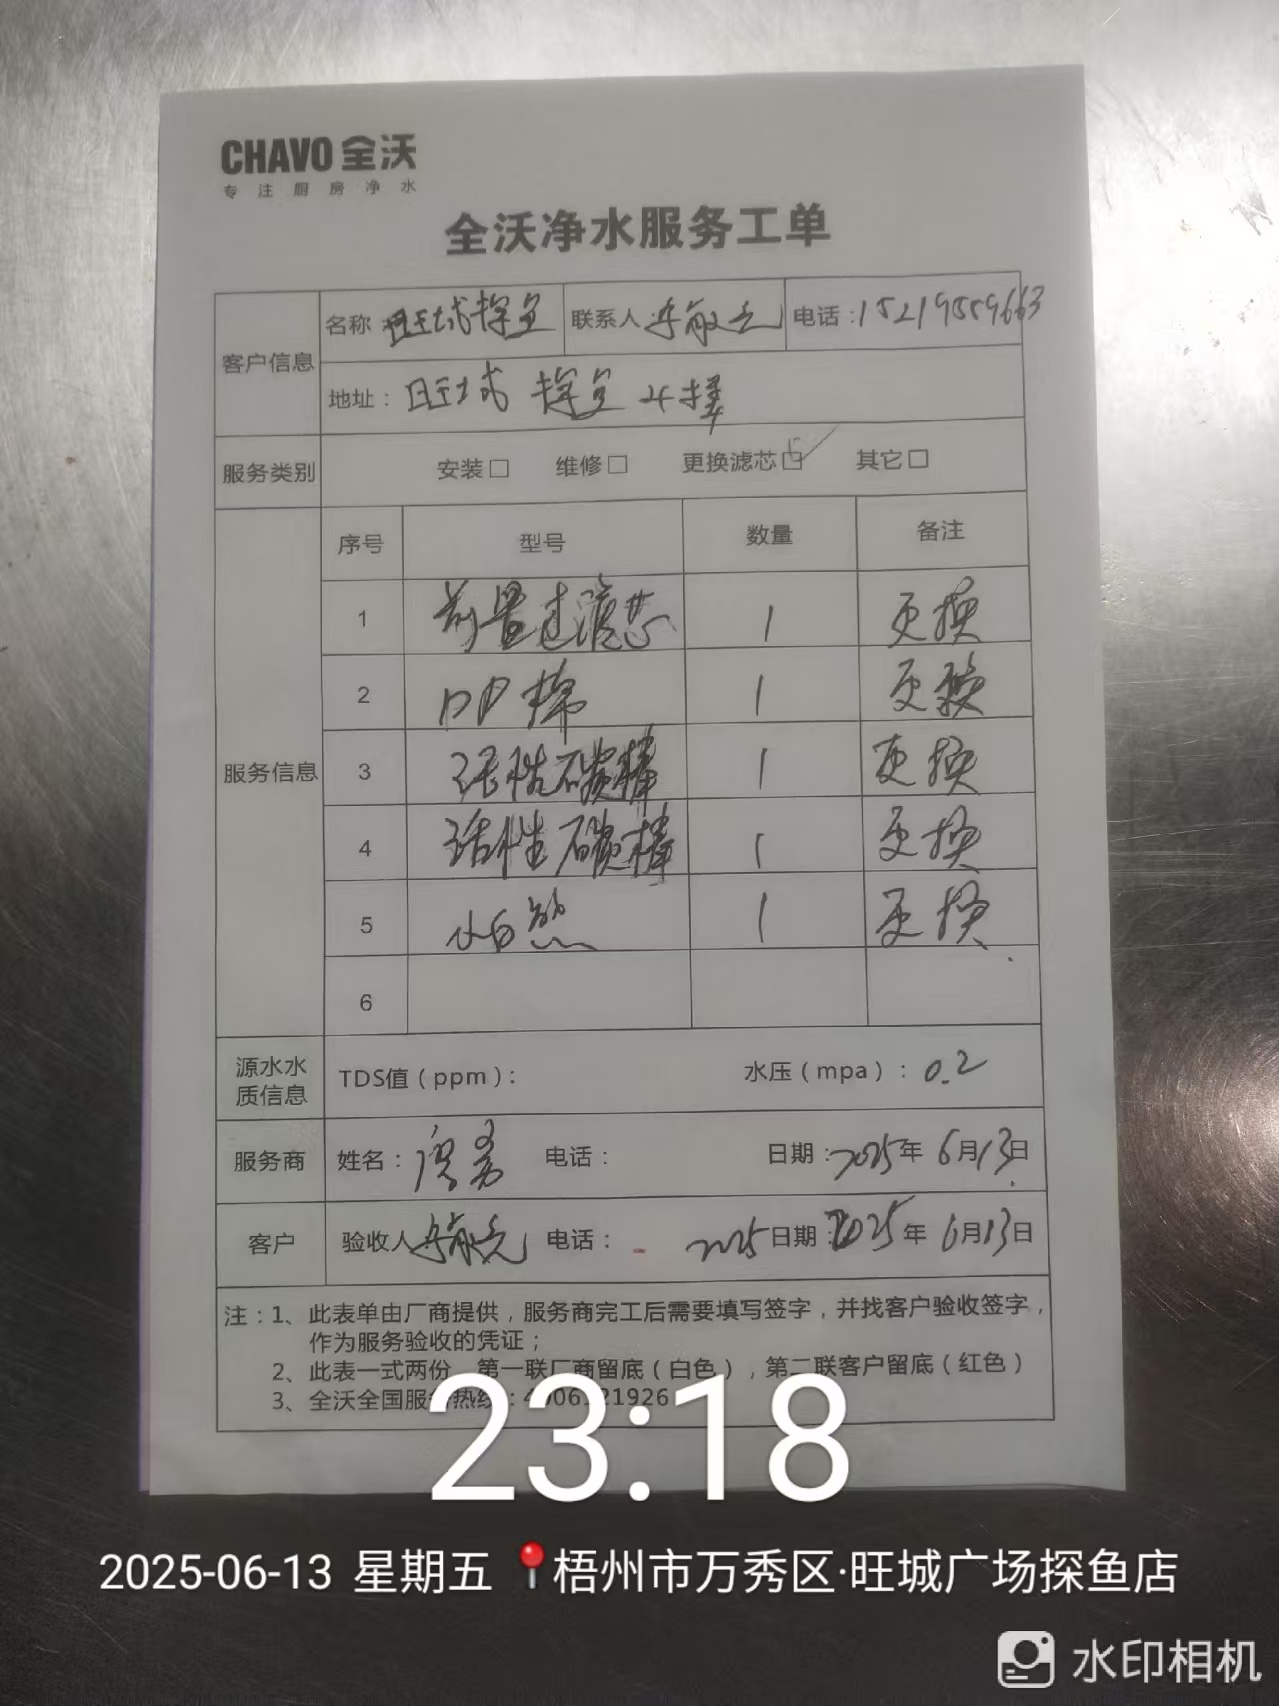 CHAVO 全沃
专注厨房净水
全沃净水服务工单
客户信息 名称 旺城探鱼 联系人 电话：15219559663
地址：旺城 探鱼 4楼
服务类别 安装□ 维修□ 更换滤芯☑ 其它□
服务信息 序号 型号 数量 备注
1 前置过滤芯 1 更换
2 PP棉 1 更换
3 活性碳棒 1 更换
4 活性碳棒 1 更换
5 1 更换
6
源水水质信息 TDS值（ppm）： 水压（mpa）：0.2
服务商 姓名： 电话： 日期：2025年6月13日
客户 验收人 电话： 2025 日期：2025年6月13日
注：1、此表单由厂商提供，服务商完工后需要填写签字，并找客户验收签字，
作为服务验收的凭证；
2、此表一式两份，第一联厂商留底（白色），第二联客户留底（红色）
3、全沃全国服务热线：
23:18
2025-06-13 星期五 梧州市万秀区·旺城广场探鱼店
水印相机